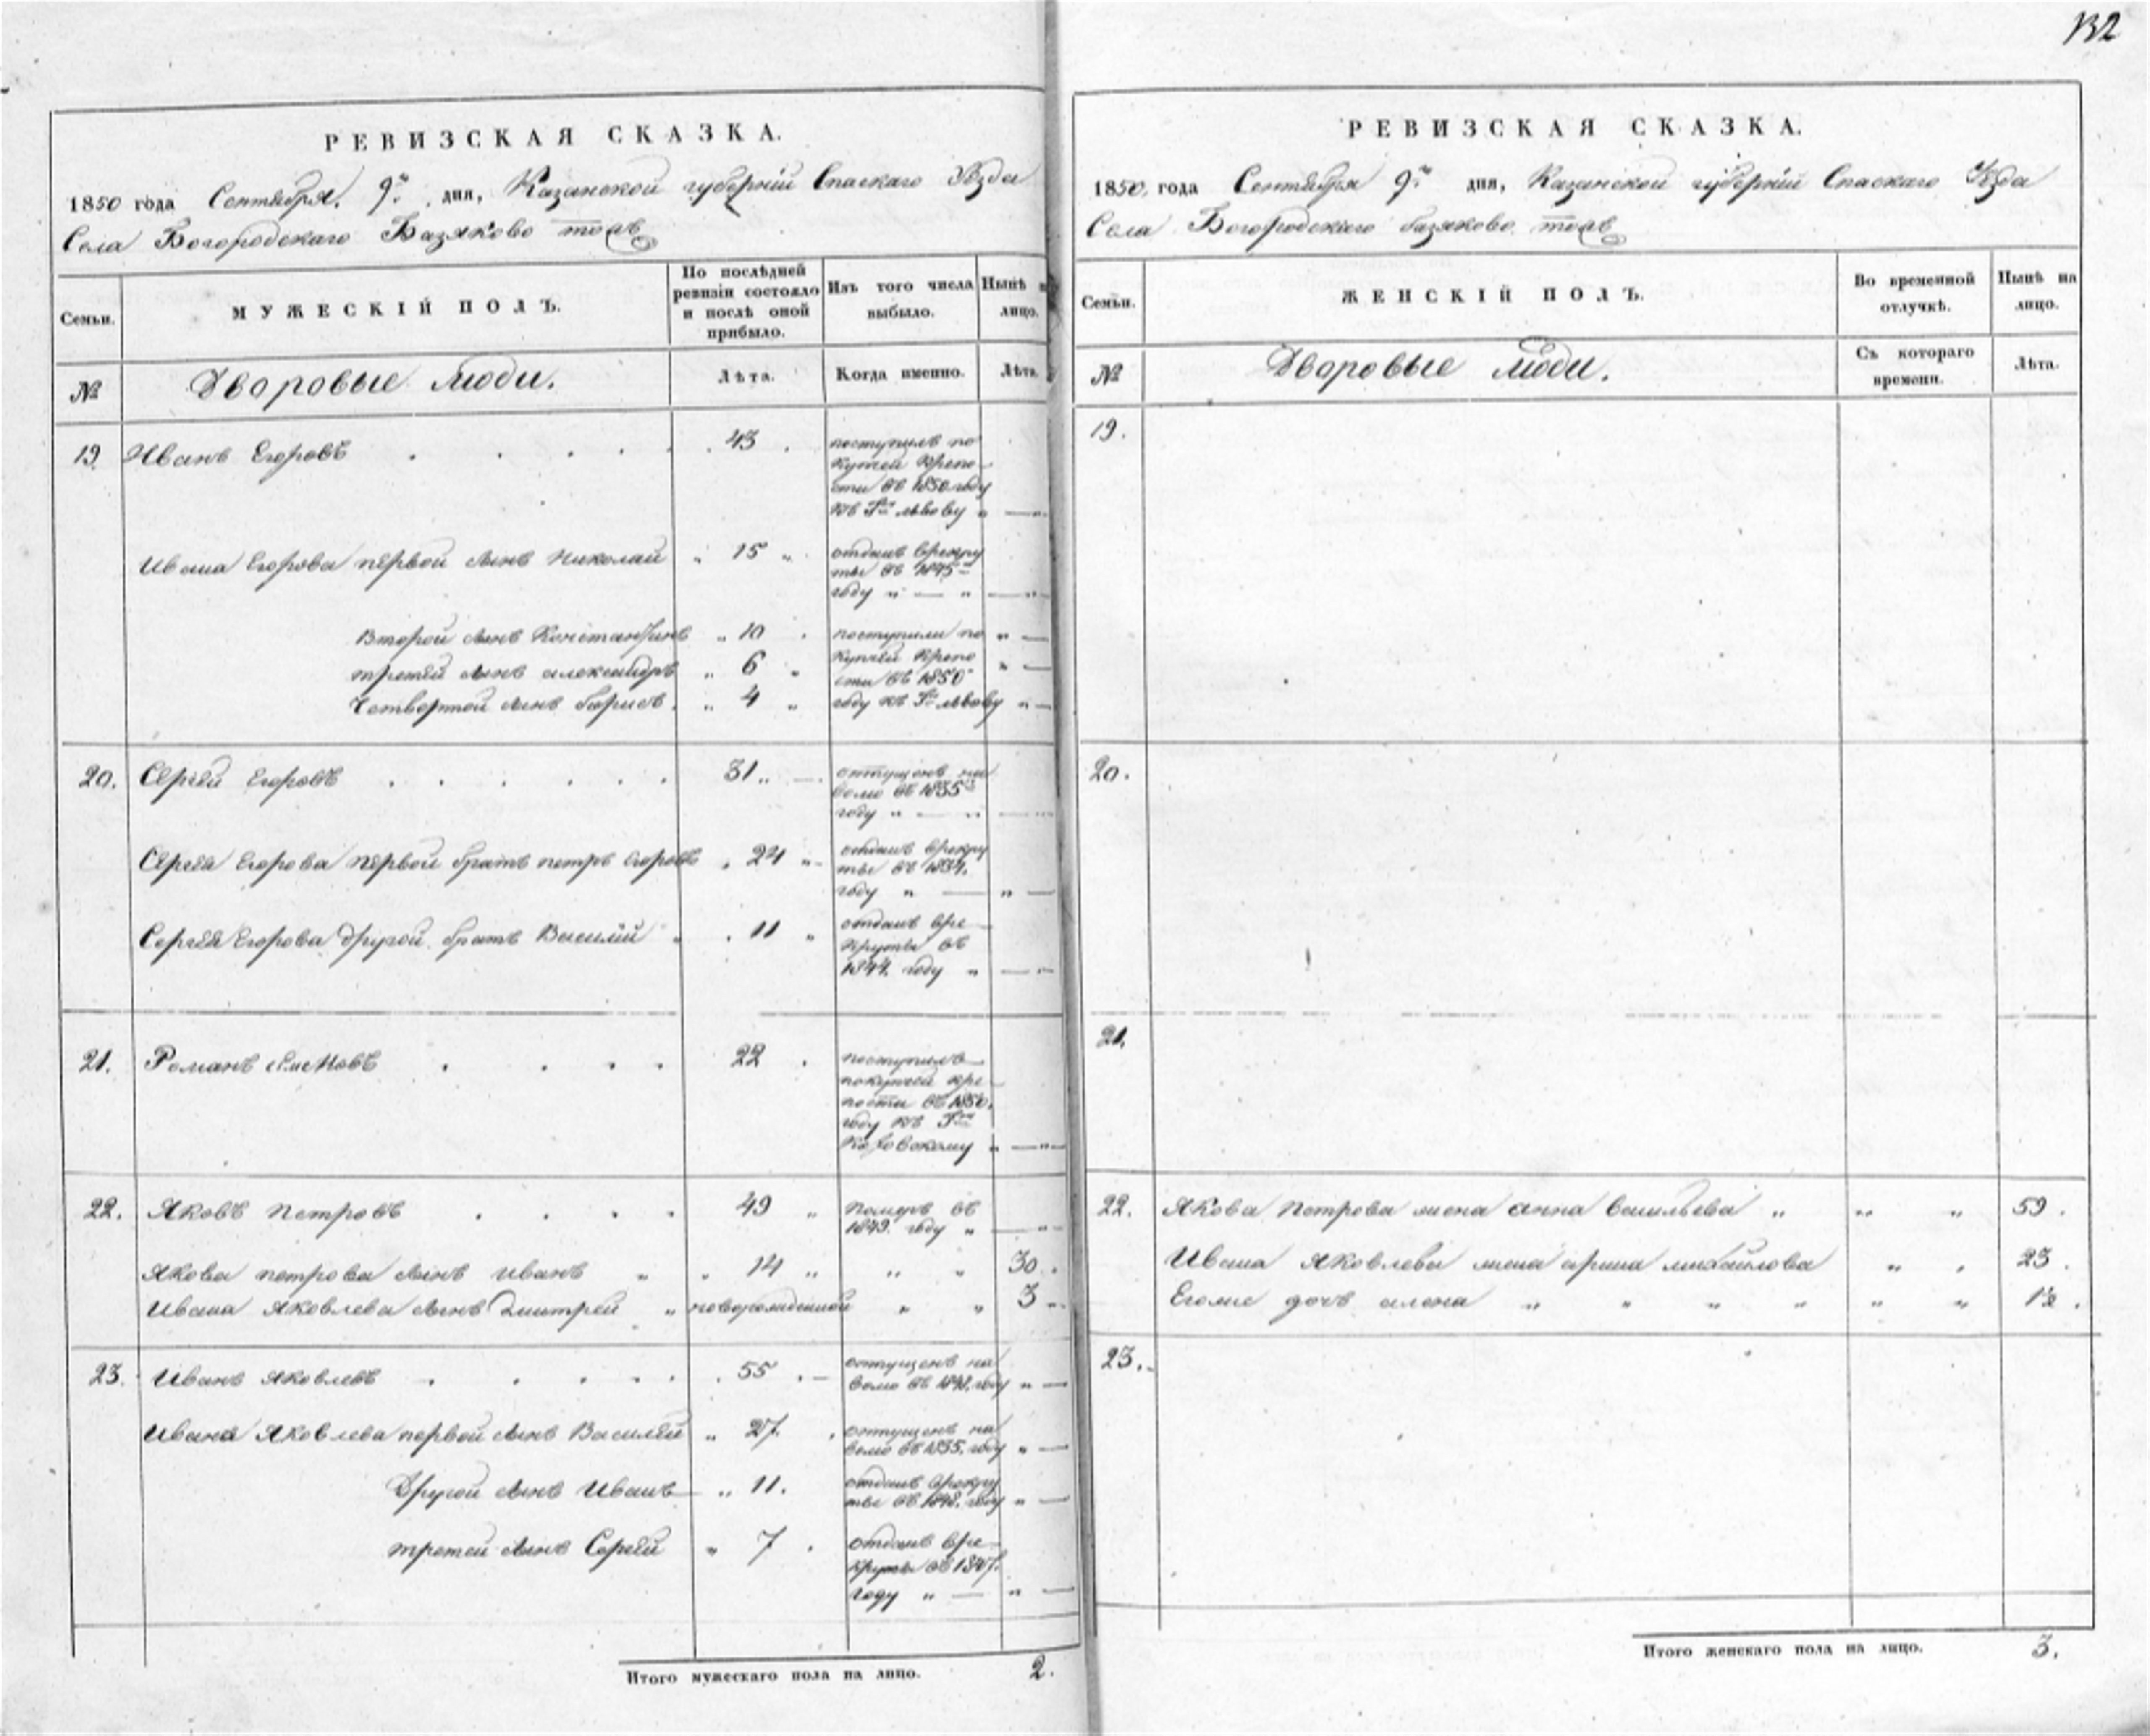 132
РЕВИЗСКАЯ СКАЗКА.
1850 года Сентября 9го дня, Казанской губернiи Спаскаго Уѣзда
Села Богородскаго Базяково тожъ
Семьи.
МУЖЕСКІЙ ПОЛЪ.
По послѣдней
ревизіи состояло
и послѣ оной
прибыло.
Изъ того числа
выбыло.
Нынѣ
лицо.
№
Дворовые люди.
Лѣта.
Когда именно.
Лѣта.
19. Иванъ Егоровъ 43 поступилъ по
купчей крепо-
сти въ 1850 году
къ Гну Львову
Ивана Егорова первой сынъ Николай 15 отданъ врекру
ты въ 1845м
году
Второй сынъ Константинъ 10 поступили по
третей сынъ александръ 6 купчей крепо
сти въ 1850
Четвертой сынъ борисъ 4 году къ Гну Львову
20. Сергей Егоровъ 31 отпущенъ на
волю въ 1835м
году
Сергея Егорова первой братъ петръ егоровъ 24 отданъ врекру
ты въ 1834.
году
Сергея Егорова другой братъ Василий 11 отданъ вре-
круты въ
1844. году
21. Романъ 22 поступилъ
покупчей кре-
пости въ 1850.
году къ Гну
22. Яковъ Петровъ 49 Померъ въ
1849. году
Якова петрова сынъ иванъ 14 30.
Ивана Яковлева сынъ Дмитрей новорожденной 3
23. Иванъ Яковлевъ 55 отпущенъ на
волю въ году
Ивана Яковлева первой сынъ Василей 27. отпущенъ на
волю въ 1835. году
Другой сынъ Иванъ 11. отданъ врекру
ты въ году
третей сынъ Сергей 7 отданъ вре-
круты въ 1847.
году
Итого мужескаго пола на лицо. 2.
РЕВИЗСКАЯ СКАЗКА.
1850. года Сентября 9го дня, Казанской губернiи Спаскаго Уѣзда
Села Богородскаго базяково тожъ
Семьи.
ЖЕНСКІЙ ПОЛЪ.
Во временной
отлучкѣ.
Нынѣ на
лицо.
№
Дворовые люди.
Съ котораго
времени.
Лѣта.
19.
20.
21.
22. Якова Петрова жена анна васильева 59.
Ивана Яковлева жена арина михайлова 23.
Егоже дочь алена 1½.
23.
Итого женскаго пола на лицо. 3.